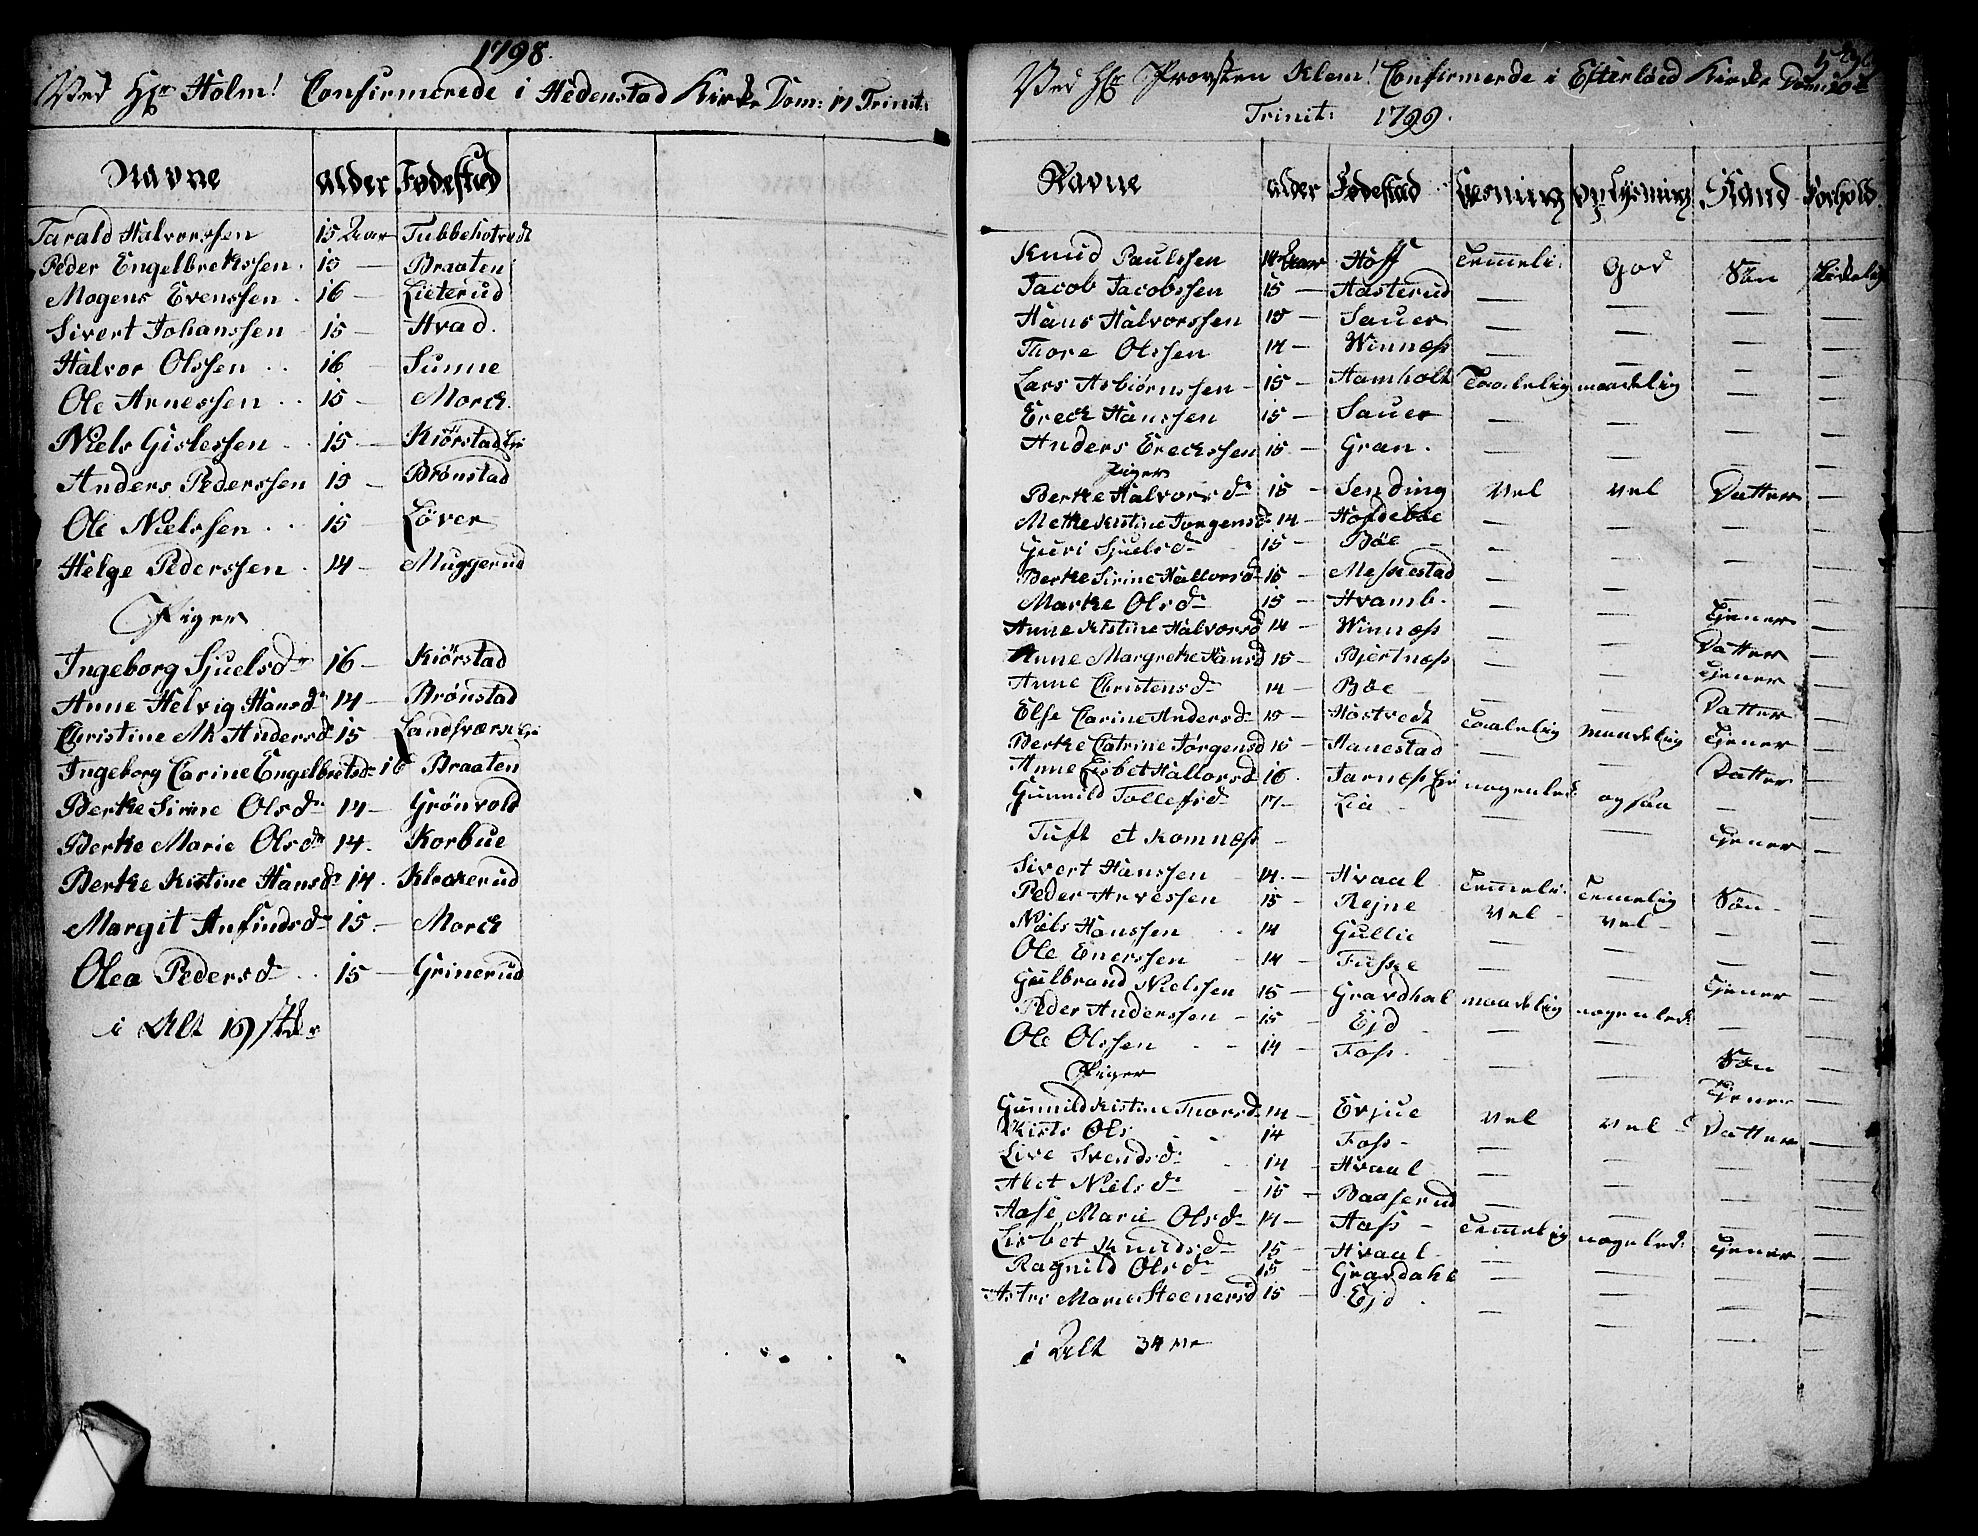 1798.
Ved Hr Holm! Confirmerede i Hedenstad Kirke Dom: 17 Trinit:
Navne alder Fødestæd
Tarald Halvorssen 15 Aar Tubbehotvedt
Peder Engelbretssen. 15 — Braaten
Mogens Evenssen. 16 — Lieterud
Sivert Johanssen 15 — Hvad.
Halvor Olssen .. 16 — Sunne
Ole Arnessen .. 15 — Morck.
Niels Gislessen .. 15 — Kiørstad Eie
Anders Pederssen 15 — Brønstad
Ole Nielssen .. 15 — Løver
Helge Pederssen . 14 — Muggerud
Piger
Ingeborg Sjuelsdr 16 — Kiørstad
Anne Helvig Hansdr 14 — Brønstad
Christine M: Andersdr 15 Landsværk Eie
Ingeborg Carine Engelbretsdr 16 Braaten
Berte Sirine Olsdr 14 — Grönvold
Berte Marie Olsdr 14. Korbue
Berte Kistine Hansdr 14. Klockerud
Margit Anfindsdr 15. — Morck
Olea Pedersdr .. 15 — Grinerud
i Alt 19 stkr
Ved Hr Provsten Klem! Confirmerde i Efterløed Kirke Dom:
Trinit: 1799.
Navne alder Fødestad Læsning oplysning Stand Forhold.
Knud Paulssen 14 Aar Hoff Temmeli: God Søn Skikelig
Jacob Jacobssen 15 — Aasterud — — — —
Hans Halvorssen 15 — Sauer — — — —
Thore Olssen 14 — Winness — — — —
Lars Asbiørnssen — 15 — Aamholt Taalelig maadelig — —
Ereck Hanssen 15 — Sauer — — — —
Anders Ereckssen 15 — Gran. — — — —
Piger
Berte Halvorsdr 15 — Sending Vel vel Datter —
Mette Kistine Jorgensdr 14 — Hofdebøe — — — —
Guri Sjuelsdr 15 — Bøe — — — —
Berte Sirine Hallorsdr 15 — Messestad — — — —
Marte Olsdr 15 — Hvamb. — — Tjener —
Anne Kistine Halvorsd 14 — Winness — — Datter —
Anne Margrete Hansd 15 — Bjertness — — Tjener —
Anne Christensdr 14 — Bøe — — Datter —
Else Carine Andersdr 15 — Hostvedt Taalelig maadelig Tjener —
Berte Catrine Jørgensd 15 — Hanestad — — Datter —
Anne Lisbet Hallorsd 16. Jarness Eie nogenled: ogsaa — —
Gunnild Tollefsdr 17 — Lia — — — Tjener —
Tuft et Komness —
Sivert Hanssen — 14. — Hvaal Temmeli: Temelig Søn —
Peder Arvessen 15 — Rejne Vel — vel — — —
Niels Hanssen 14 Gullie — — — —
Ole Enerssen 14 — Fusse — — Tjener —
Gulbrand Nielssen 15 — Gravdhal maadelig nogenled: — —
Peder Anderssen — 15 — Ejd — — Søn —
Ole Olssen — 14 — Foss. — — Tjener —
Piger
Gunnild Kistine Thorsd 14 — Evjue vel vel Datter —
Kisti Ols 14 Foss — — — — —
Live Svendsdr 14 — Hvaal — — — —
Abet Nielsdr — 15 — Baaserud — — — —
Aase Marie Olsdr 14 — Aass — Temmelig nogeled: Tjener —
Lisbet Knudsdr 15 — Hvaal — — — —
Ragnild Olsdr 15 — Gravdahl — — — —
Astri Marie Steenersd 15 — Ejd. — — — —
i Alt 34 re